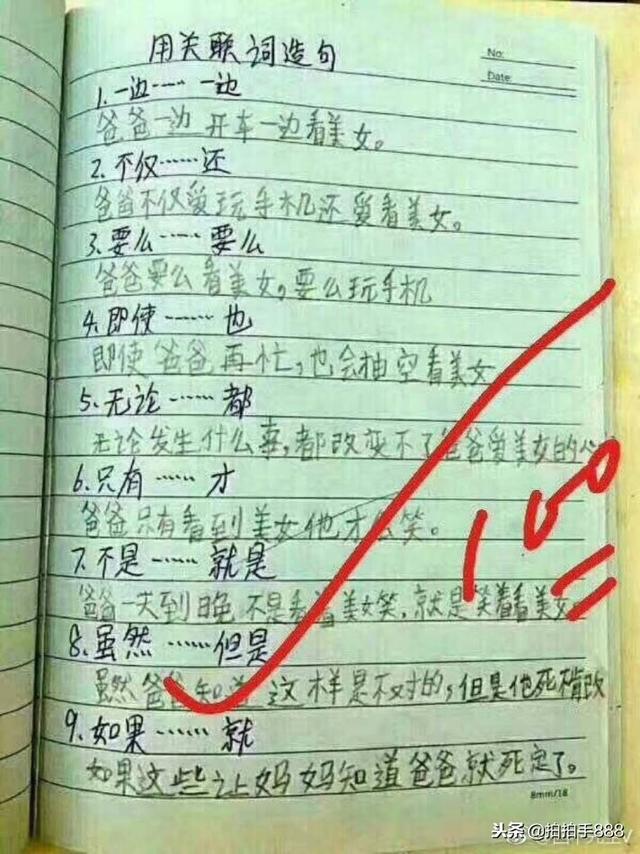 用关联词造句
No:
Date:
1.一边……一边
爸爸一边开车一边看美女。
2.不仅……还
爸爸不仅爱玩手机还爱看美女。
3.要么……要么
爸爸要么看美女,要么玩手机
4.即使……也
即使爸爸再忙,也会抽空看美女
5.无论……都
无论发生什么事,都改变不了爸爸爱美女的心
6.只有……才
爸爸只有看到美女他才会笑。
7.不是……就是
爸爸一天到晚不是看着美女笑,就是笑着看美女
8.虽然……但是
虽然爸爸知道这样是不对的,但是他死不悔改
9.如果……就
如果这些让妈妈知道爸爸就死定了。
100
8mm/18
头条@拍拍手888